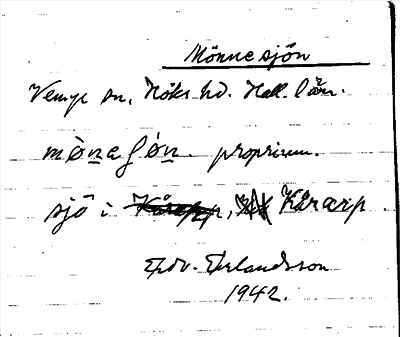 Mönnesjön
Vemge sn, Höks hd. Hall. län.
mònaʃón. proprium.
sjö i Kårarp, Kårarp
Edv. Erlandsson
1942.